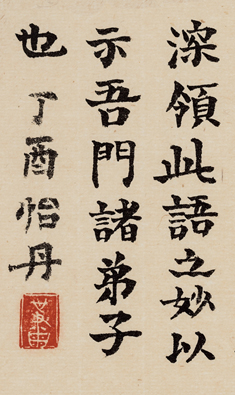 深領此語之妙以
示吾門諸弟子
也 丁酉怡丹